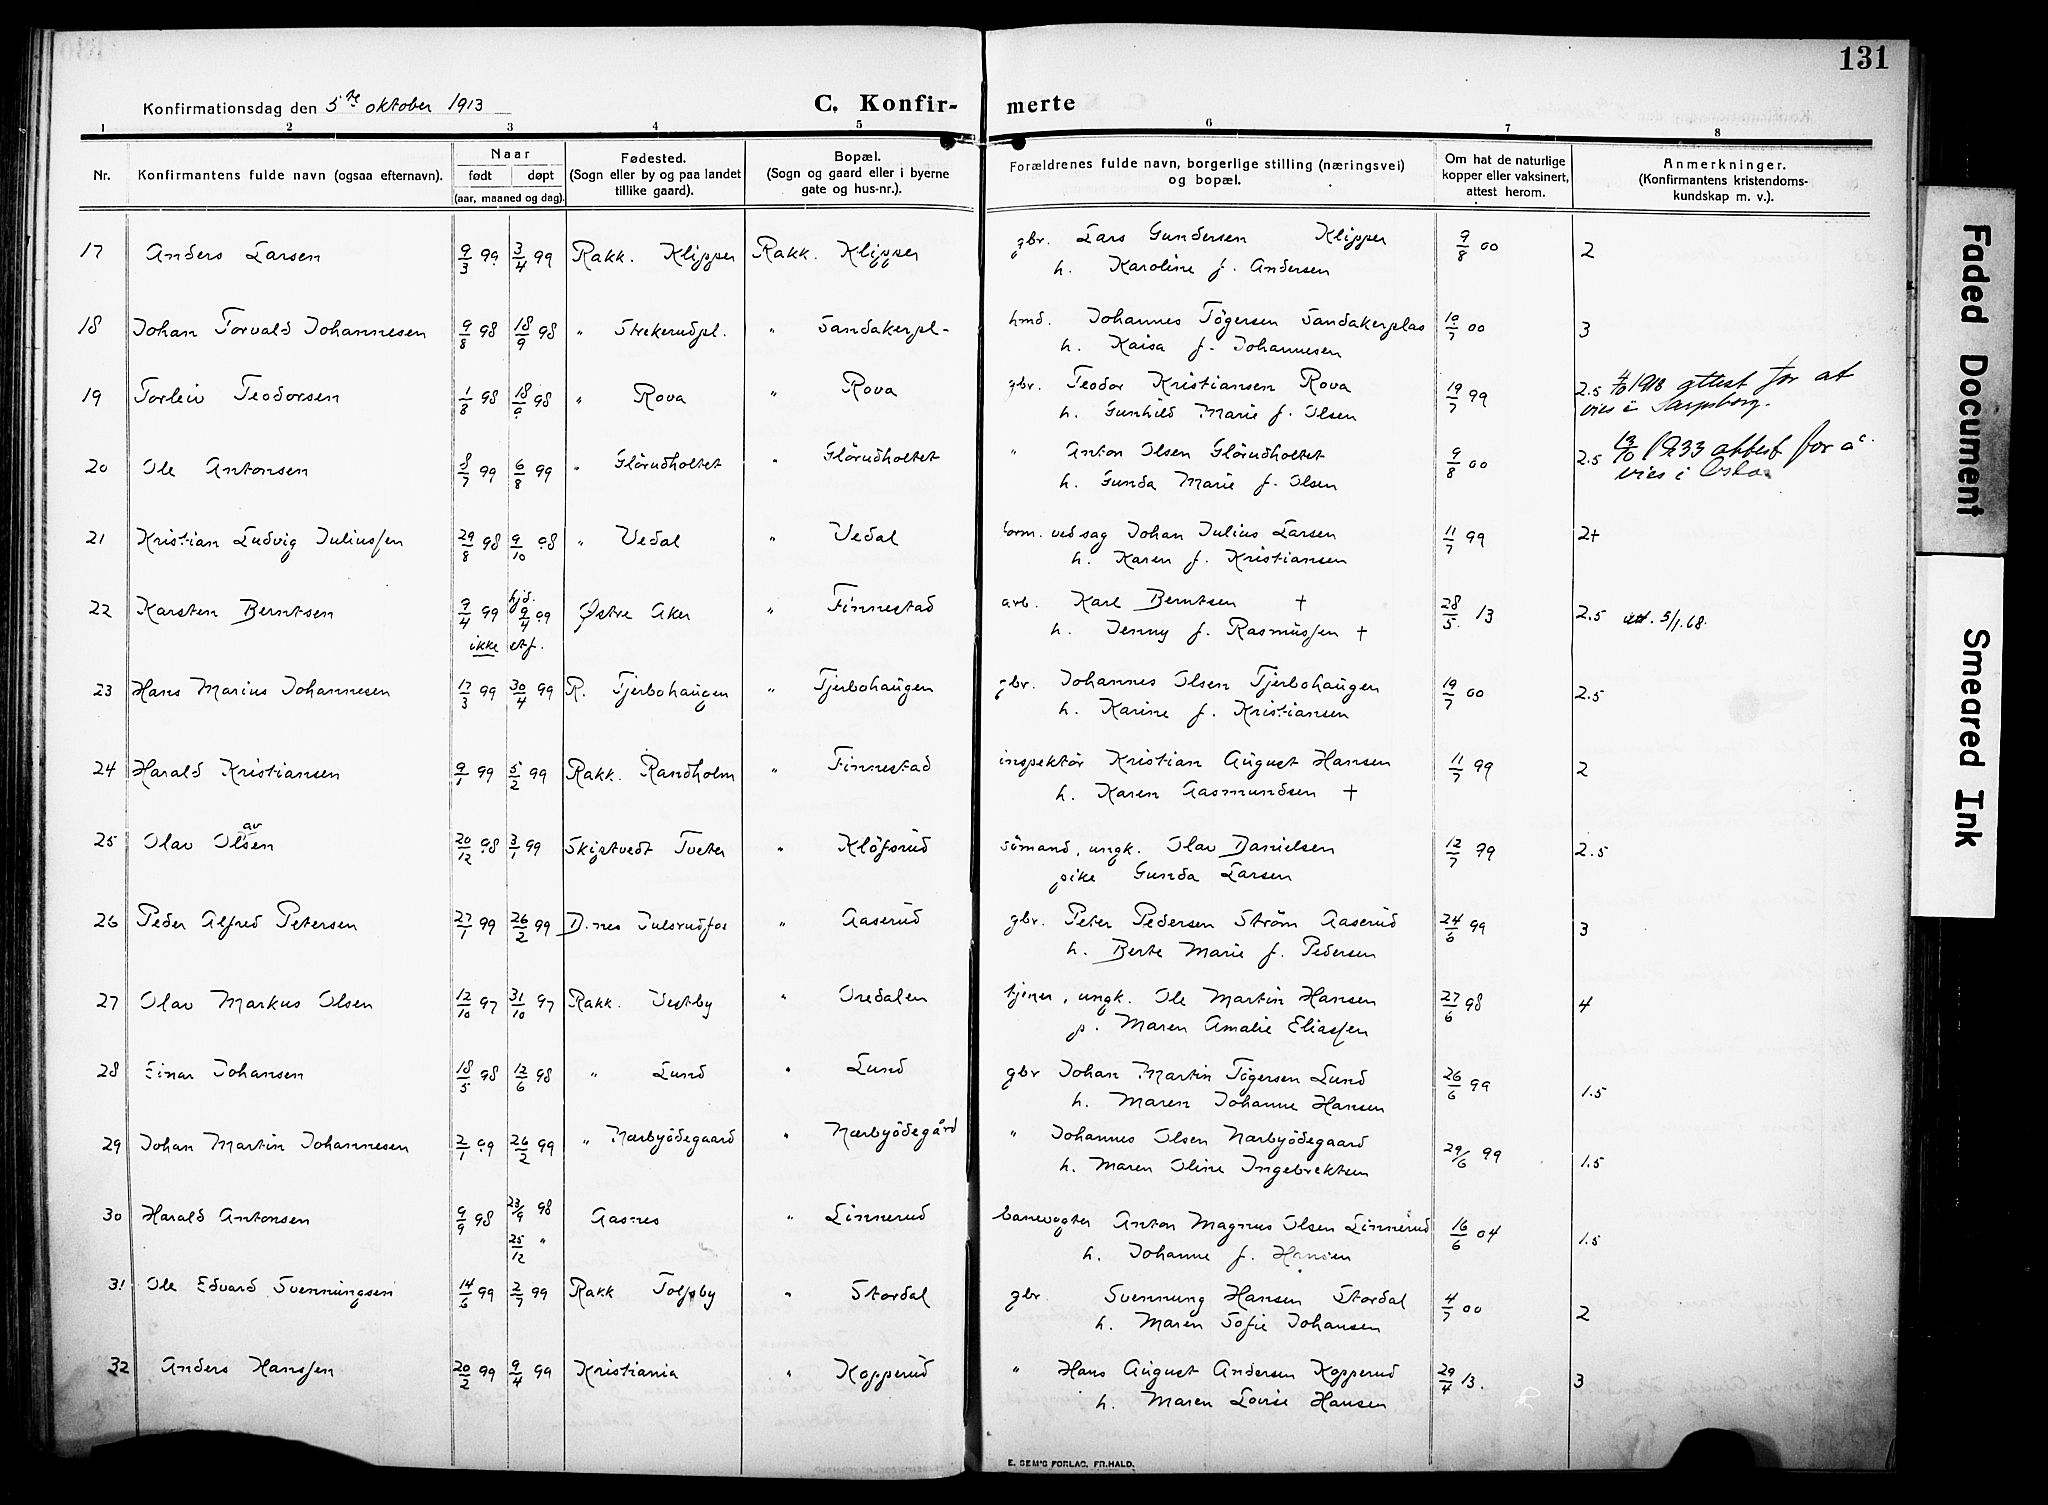 131
Konfirmationsdag den 5te oktober 1913
C. Konfir- merte
1 2 3 4 5 6 7 8
Nr.
Konfirmantens fulde navn (ogsaa efternavn).
Naar
født døpt
(aar, maaned og dag).
Fødested.
(Sogn eller by og paa landet
tillike gaard).
Bopæl.
(Sogn og gaard eller i byerne
gate og hus-nr.).
Forældrenes fulde navn, borgerlige stilling (næringsvei)
og bopæl.
Om hat de naturlige
kopper eller vaksinert,
attest herom.
Anmerkninger.
(Konfirmantens kristendoms-
kundskap m. v.).
17 Anders Larsen 9/3 99 3/4 99 Rakk. Klipper Rakk. Klipper gbr. Lars Gundersen Klipper 9/8 00 2
h. Karoline f. Andersen
18 Johan Torvald Johannesen 9/8 98 18/9 98 " Strekerudpl. " Sandakerpl- hmd. Johannes Tögersen Sandakerplas 10/7 00 3
h. Kaisa f. Johannesen
19 Torleiv Teodorsen 1/8 98 18/9 98 " Rova " Rova gbr. Teodor Kristiansen Rova 19/7 99 2.5 4/10 1918 attest for at
h. Gunhild Marie f. Olsen vies i Sarpsborg.
20 Ole Antonsen 8/7 99 6/8 99 " Glörudholtet " Glörudholtet " Anton Olsen Glörudholtet 9/8 00 2.5 13/10 1933 attest for a
h. Gunda Marie f. Olsen vies i Oslo.
21 Kristian Ludvig Juliussen 29/8 98 9/10 98 " Vedal " Vedal form. ved sag Johan Julius Larsen 11/7 99 2+
h. Karen f. Kristiansen
22 Karsten Berntsen 9/4 99 hjd. 9/4 99 Østre Aker " Finnestad arb. Karl Berntsen † 28/5 13 2.5 utst. 5/1.68.
ikke stf. h. Jenny f. Rasmussen †
23 Hans Marius Johannesen 17/3 99 30/4 99 R. Tjerbohaugen " Tjerbohaugen gbr. Johannes Olsen Tjerbohaugen 19/7 00 2.5
h. Karine f. Kristiansen
24 Harald Kristiansen 9/1 99 5/2 99 Rakk. Randholm " Finnestad inspektör Kristian August Hansen 11/7 99 2
h. Karen Aasmundsen †
25 Olav Olavsen 20/12 98 3/1 99 Skiptvedt Tveter " Klöfsrud sömand, ungk. Olav Danielsen 12/7 99 2.5
pike Gunda Larsen
26 Peder Alfred Petersen 27/1 99 26/2 99 D.nes Julsrudfos " Aaserud gbr. Peter Pedersen Ström Aaserud 24/6 99 3
h. Berte Marie f. Pedersen
27 Olav Markus Olsen 12/10 97 31/10 97 Rakk. Vestby " Oredalen tjener, ungk. Ole Martin Hansen 27/6 98 4
p. Maren Amalie Eliassen
28 Einar Johansen 18/5 98 12/6 98 " Lund " Lund gbr Johan Martin Tögersen Lund 26/6 99 1.5
h. Maren Johanne Hansen
29 Johan Martin Johannesen 2/1 99 26/2 99 " Nærbyödegaard " Nærbyödegård " Johannes Olsen Nærbyödegaard 29/6 99 1.5
h. Maren Oline Ingebrektsen
30 Harald Antonsen 9/9 98 23/9 98 Aasnes " Linnerud banevogter Anton Magnus Olsen Linnerud 16/6 04 1.5
25/12 " h. Johanne f. Hansen
31 Ole Edvard Svenningsen 14/6 99 2/7 99 Rakk Tolfsby " Stordal gbr. Svenning Hansen Stordal 4/7 00 2
h. Maren Sofie Johansen
32 Anders Hanssen 20/2 99 9/4 99 Kristiania " Kopperud " Hans August Andersen Kopperud 29/4 13. 3
h. Maren Lovise Hansen
E. SEM'S FORLAG, FR.HALD.
Faded Document
Smeared Ink